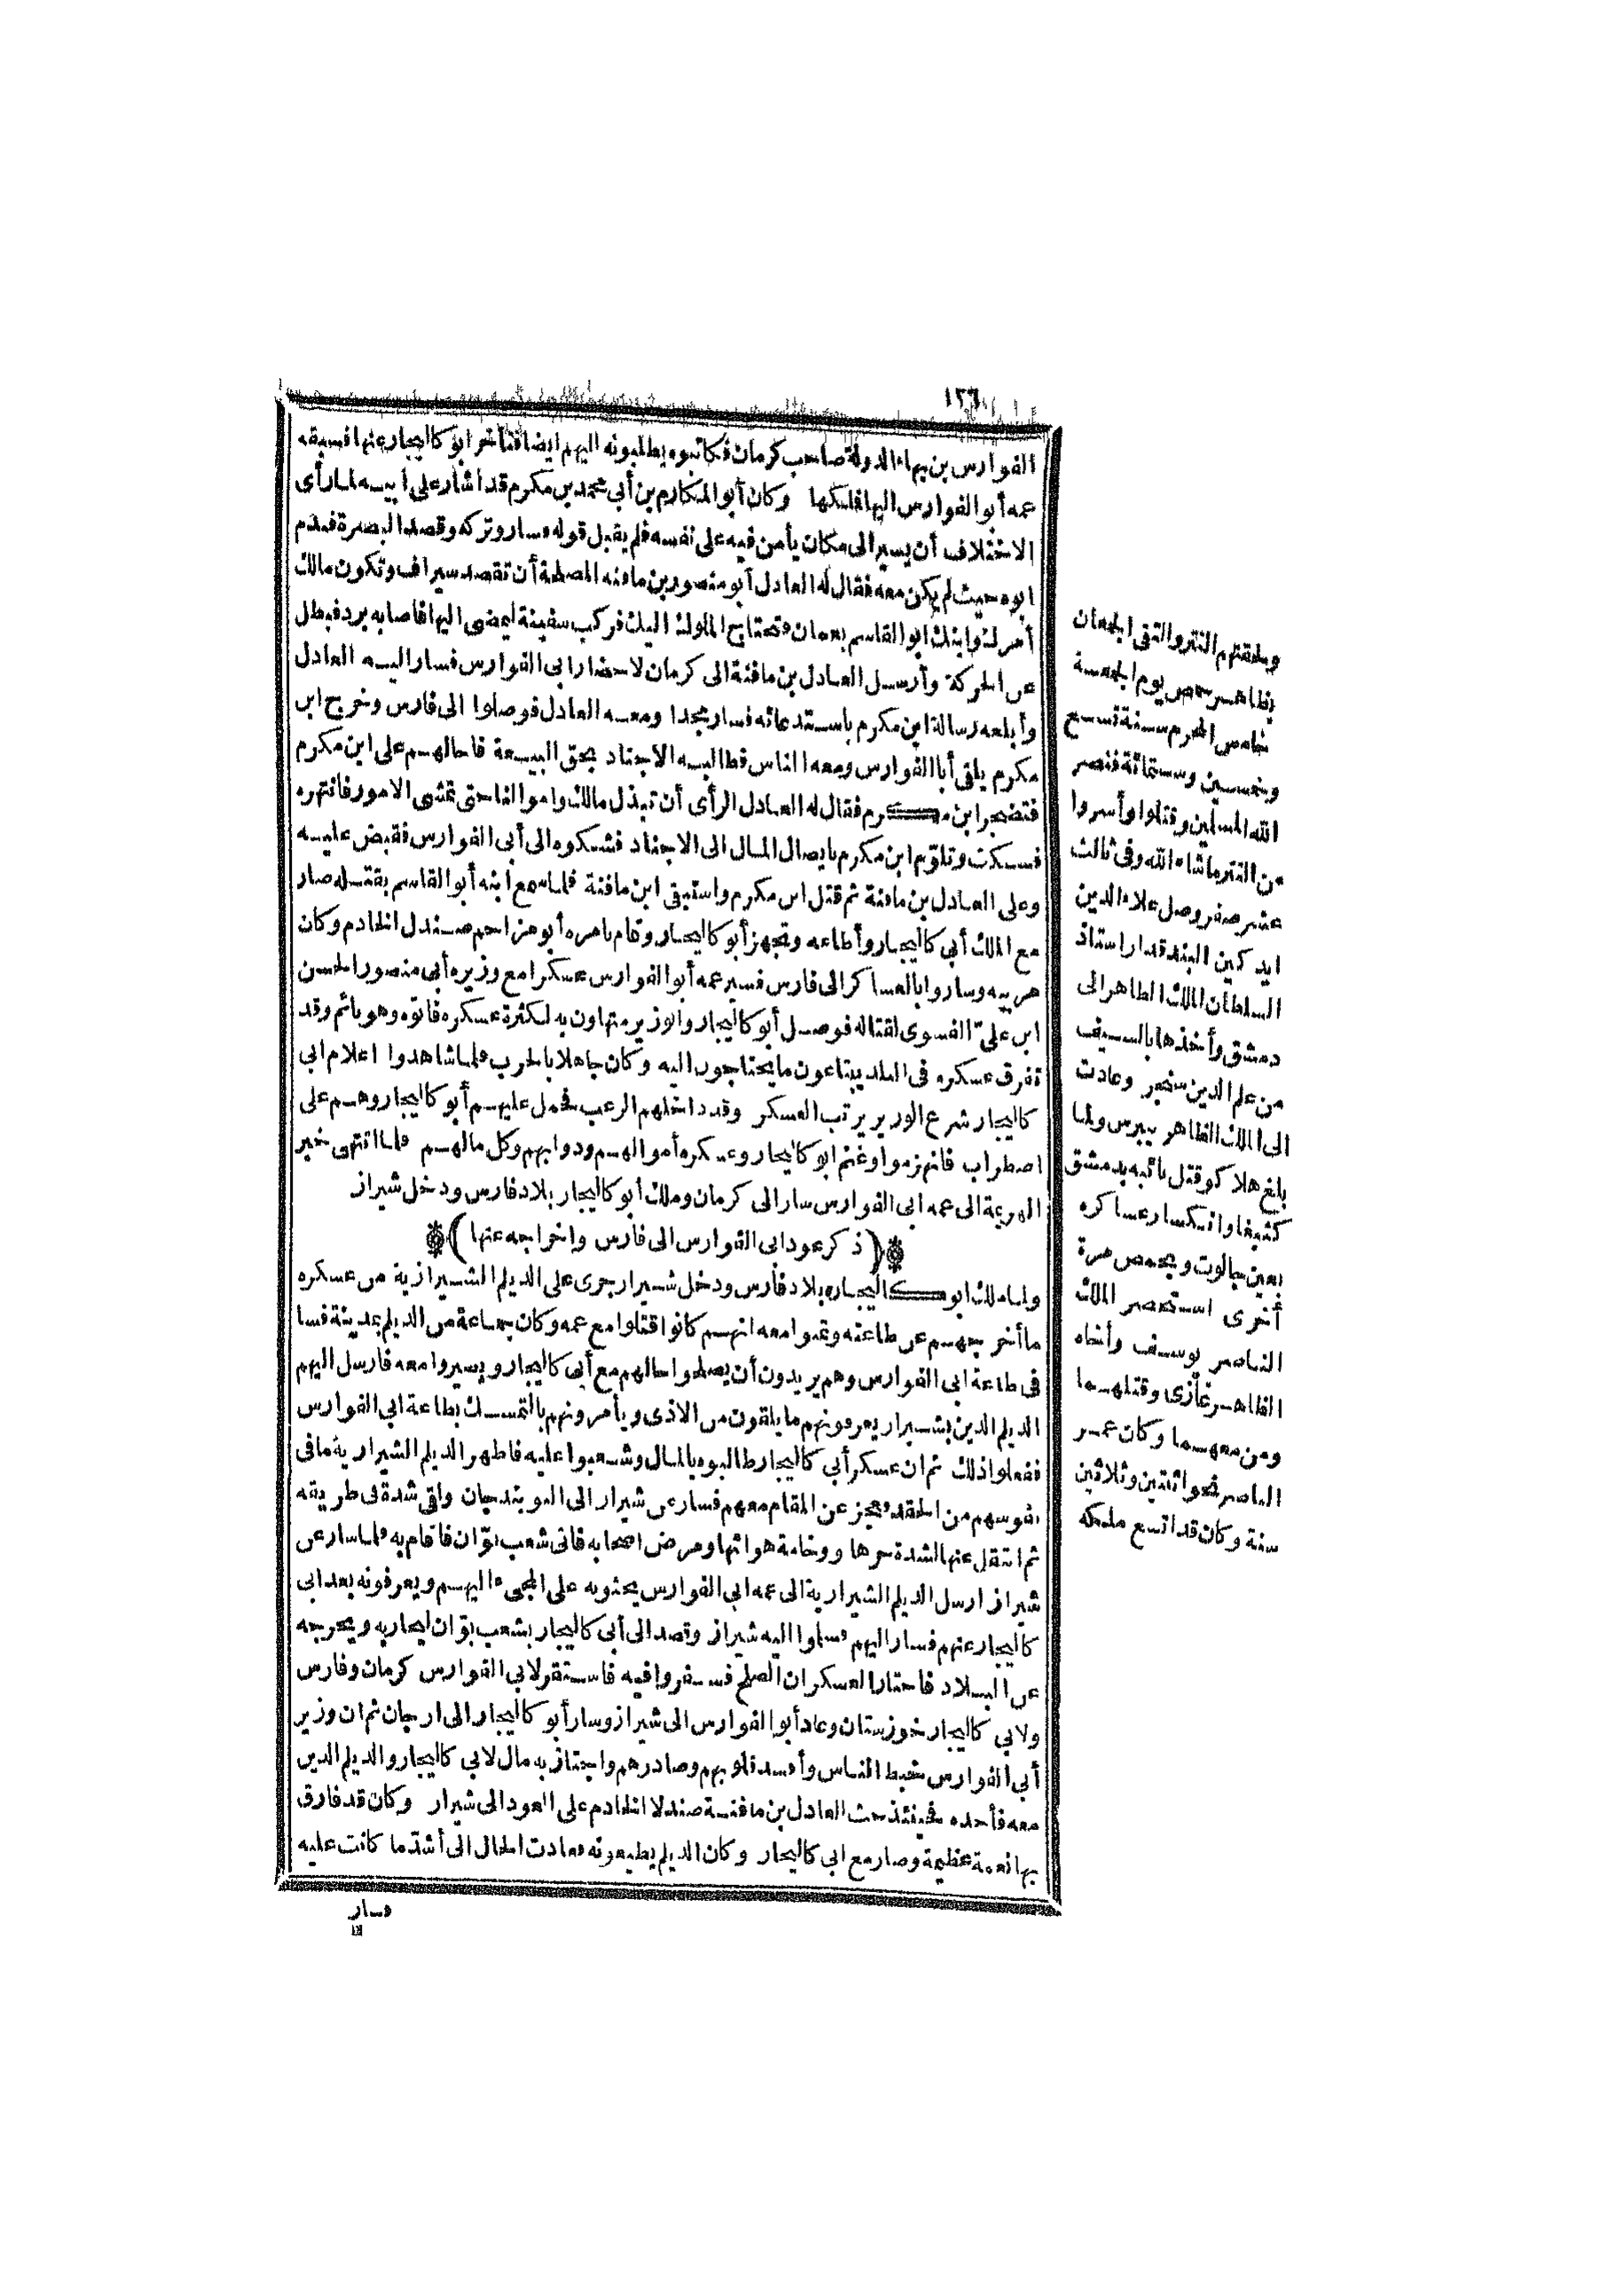 ١٢٦
الفوارس بن بهاء الدولة صاحب كرمان فكاتبوه يطلبونه اليهم ايضا فتأخر ابو كاليجار عنها فسبقه
عمه أبو الفوارس اليها فملكها وكان أبو المكارم بن أبي محمد بن مكرم قد اشار على ابيه لما رأى
الاختلاف أن يسير الى مكان يأمن فيه على نفسه فلم يقبل قوله فسار وتركه وقصد البصرة فندم
ابوه حيث لم يكن معه فقال له العادل أبو منصور بن مافنه المصلحة أن تقصد سيراف وتكون مالك
أمرك وابنك ابو القاسم بعمان فتحتاج الملوك اليك فركب سفينة ليمضى اليها فاصابه برد فبطل
عن الحركة وأرسل العادل بن مافنة الى كرمان لاحضار ابى الفوارس فسار اليه العادل
وأبلغه رسالة ابن مكرم باستدعائه فسار مجدا ومعه العادل فوصلوا الى فارس وخرج ابن
مكرم يلقى أبا الفوارس ومعه الناس فطالبه الاجناد بحق البيعة فاحالهم على ابن مكرم
فتضجر ابن مكرم فقال له العادل الرأى أن تبذل مالك واموالنا حتى تمشى الامور فانتهره
فسكت وتلوّم ابن مكرم بايصال المال الى الاجناد فشكوه الى أبى الفوارس فقبض عليه
وعلى العادل بن مافنة ثم قتل ابن مكرم واستبقى ابن مافنة فلما سمع ابنه أبو القاسم بقتله صار
مع الملك أبي كاليجار وأطاعه وتجهز أبو كاليجار وقام بامره أبو مزاحم صندل الخادم وكان
مربيه وساروا بالعساكر الى فارس فسير عمه أبو الفوارس عسكرا مع وزيره أبى منصور الحسن
ابن علىّ الفسوى لقتاله فوصل أبو كاليجار والوزير متهاون به لكثرة عسكره فاتوه وهو نائم وقد
تفرق عسكره فى البلد يبتاعون ما يحتاجون اليه وكان جاهلا بالحرب فلما شاهدوا اعلام ابى
كاليجار شرع الوزير يرتب العسكر وقد داخلهم الرعب فحمل عليهم أبو كاليجار وهم على
اضطراب فانهزموا وغنم ابو كاليجار وعسكره أموالهم ودوابهم وكل مالهم فلما انتهى خبر
الهزيمة الى عمه ابى الفوارس سار الى كرمان وملك أبو كاليجار بلاد فارس ودخل شيراز
(ذكر عود ابى الفوارس الى فارس واخراجه عنها)
ولما ملك ابو كاليجار بلاد فارس ودخل شيراز جرى على الديلم الشيرازية من عسكره
ما أخرجهم عن طاعته وتمنوا معه انهم كانوا قتلوا مع عمه وكان جماعة من الديلم بمدينة فسا
فى طاعة ابى الفوارس وهم يريدون أن يصلحوا حالهم مع أبى كاليجار ويسيروا معه فارسل اليهم
الديلم الذين بشيراز يعرفونهم ما يلقون من الاذى ويأمرونهم بالتمسك بطاعة ابى الفوارس
ففعلوا ذلك ثم ان عسكر أبي كاليجار طالبوه بالمال وشغبوا عليه فاظهر الديلم الشيرازية ما فى
نفوسهم من الحقد فعجز عن المقام معهم فسار عن شيراز الى النوبندجان ولقى شدة فى طريقه
ثم انتقل عنها لشدة حرها ووخامة هوائها ومرض اصحابه فاتى شعب بوّان فاقام به فلما سار عن
شيراز ارسل الديلم الشيرازية الى عمه ابى الفوارس يحثونه على المجىء اليهم ويعرفونه بعد ابى
كاليجار عنهم فسار اليهم فسلموا اليه شيراز وقصد الى أبى كاليجار بشعب بوّان ليحاربه ويخرجه
عن البلاد فاختار العسكران الصلح فسفروا فيه فاستقر لابى الفوارس كرمان وفارس
ولابي كاليجار خوزستان وعاد أبو الفوارس الى شيراز وسار أبو كاليجار الى ارجان ثم ان وزير
أبى الفوارس خبط الناس وأفسد قلوبهم وصادرهم واجتاز به مال لابي كاليجار والديلم الذين
معه فأخذه فحينئذ حث العادل بن مافنة صندلا الخادم على العود الى شيراز وكان قد فارق
بها نعمة عظيمة وصار مع ابى كاليجار وكان الديلم يطيعونه فعادت الحال الى أشدّ ما كانت عليه
فسار
وملقتهم التتر والتقى الجمعان
بظاهر حمص يوم الجمعة
خامس المحرم سنة تسع
وخمسين وستمائة فنصر
الله المسلمين وقتلوا وأسروا
من التتر ما شاء الله وفى ثالث
عشر صفر وصل علاء الدين
ايدكين البندقدار استاذ
السلطان الملك الظاهر الى
دمشق وأخذها بالسيف
من علم الدين سنجر وعادت
الى الملك الظاهر بيبرس ولما
بلغ هلاكو قتل نائبه بدمشق
كتبغا وانكسار عساكره
بعين جالوت وبحمص مرة
أخرى استحضر الملك
الناصر يوسف وأخاه
الظاهر غازى وقتلهما
ومن معهما وكان عمر
الناصر نحو اثنتين وثلاثين
سنة وكان قد اتسع ملكه